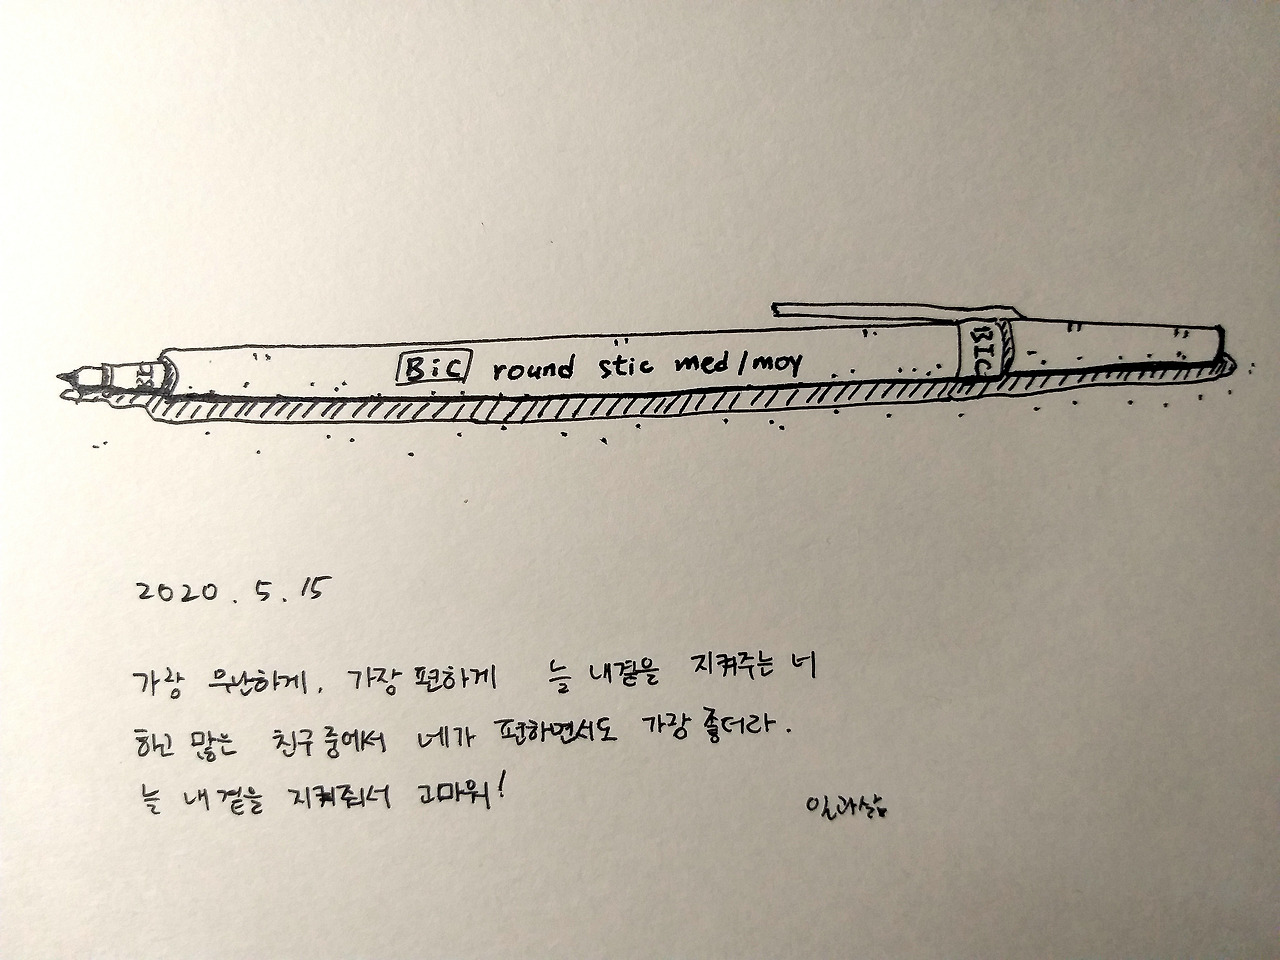 BiC round stic med/moy
BIC
2020.5.15
가장 무난하게, 가장 편하게 늘 내곁을 지켜주는 너
하고 많은 친구 중에서 네가 편하면서도 가장 좋더라.
늘 내 곁을 지켜줘서 고마워!
일과삶